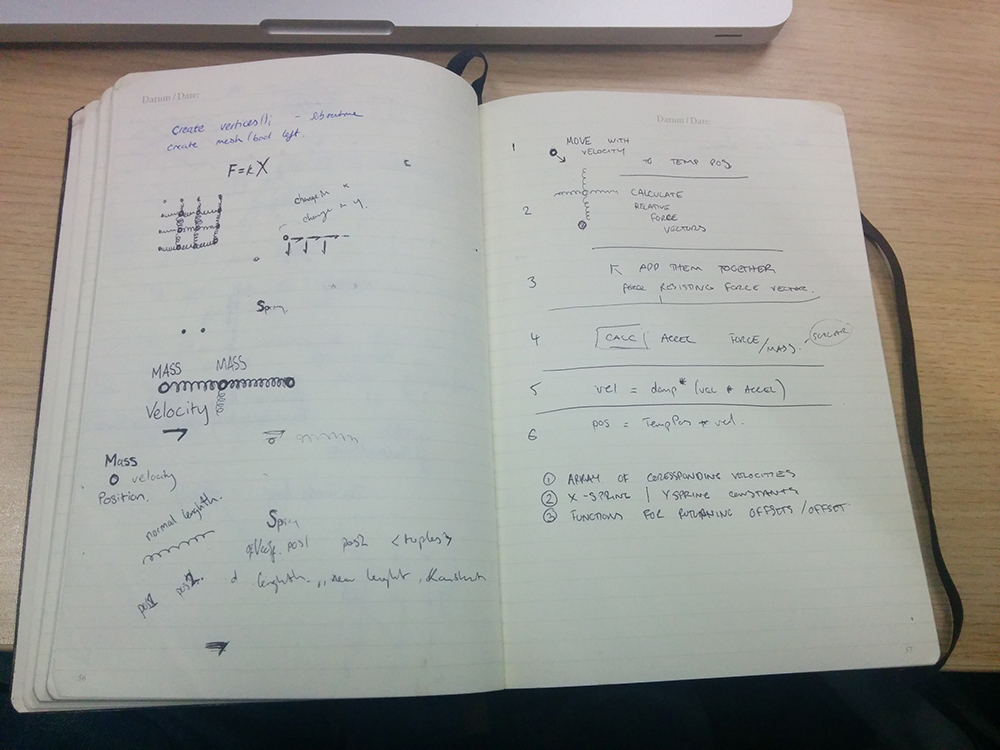 Datum / Date:
create vertices(); -
create mesh / left.
F=kX
change in x
change in y.
Spring
MASS MASS
Velocity
Mass
velocity
Position.
normal lenghth.
Spring
pos1 pos2 <tuples>
pos1 pos2. d lenghth. ,, new lenght ,
56
Datum / Date:
1 MOVE WITH
VELOCITY
TEMP POS
2 CALCULATE
RELATIVE
FORCE
VECTORS
3 ADD THEM TOGETHER
FORCE RESISTING FORCE VECTOR.
4 CALC ACCEL FORCE/MASS. SCALAR
5 vel = damp * (VEL * ACCEL)
6 pos = TempPos * vel.
① ARRAY OF CORESSPONDING VELOCITIES
② X-SPRING | Y SPRING CONSTANTS
③ FUNCTIONS FOR RETURNING OFFSETS/OFFSET
57